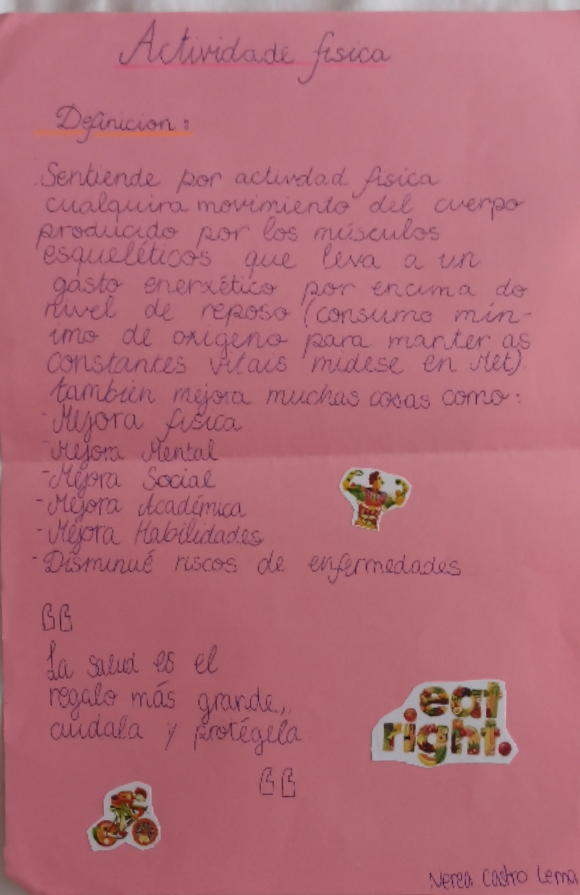 Actividade fisica
Definicion:
Sentiende por actividad fisica
cualquira movimiento del cuerpo
producido por los músculos
esqueléticos que leva a un
gasto enerxético por encima do
nivel de reposo (consumo mín-
imo de oxigeno para manter as
constantes vitais midese en Met)
también mejora muchas cosas como:
- Mejora fisica
- Mejora Mental
- Mejora Social
- Mejora Académica
- Mejora Habilidades
- Disminué riscos de enfermedades
La salud es el
regalo más grande,,
cuidala y protégela
eat
right.
Nerea Castro Lema